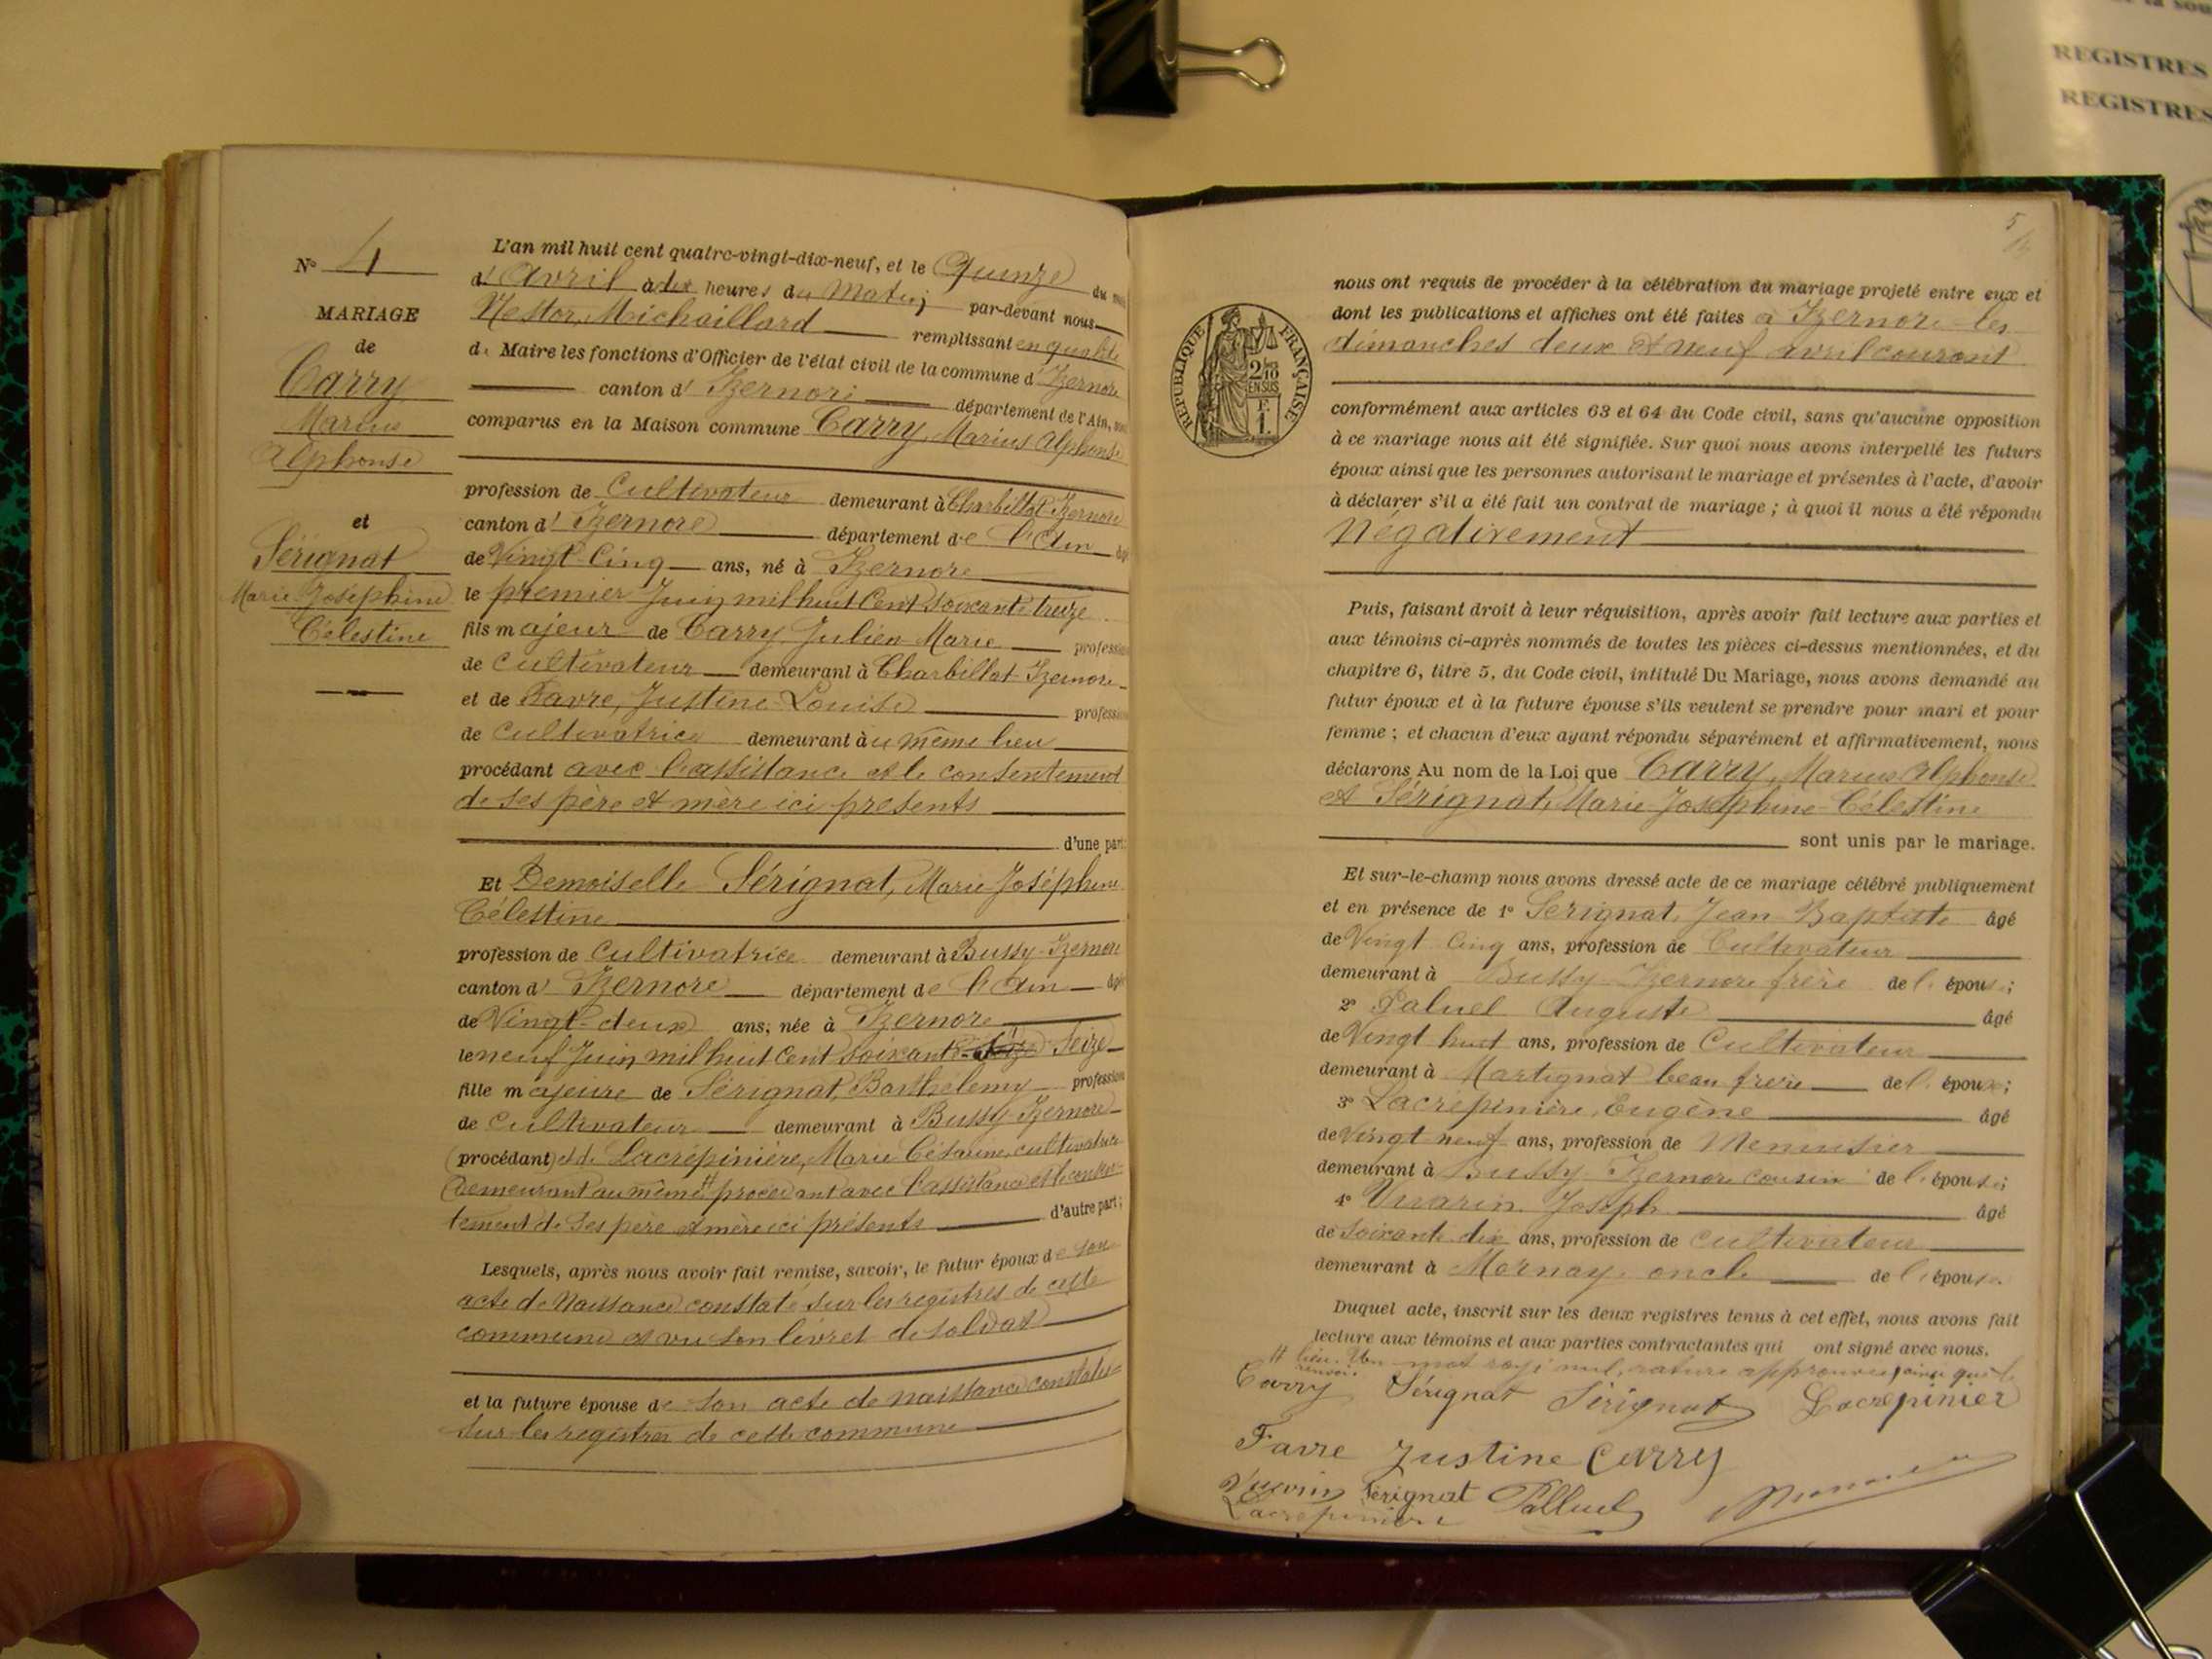 N° 4
MARIAGE
de
Carry
Marius
Alphonse
et
Sérignat
Marie Joséphine
Célestine
L'an mil huit cent quatre-vingt-dix-neuf, et le Quinze du
d'avril à dix heures du Matin par-devant nous
Nestor Michaillard remplissant en qualité
de Maire les fonctions d'Officier de l'état civil de la commune d'Izernore
canton d'Izernore département de l'Ain,
comparus en la Maison commune Carry, Marius Alphonse
profession de Cultivateur demeurant à Charbillat Izernore
canton d'Izernore département de l'Ain
de Vingt-Cinq ans, né à Izernore
le premier Juin mil huit Cent soixante treize
fils majeur de Carry, Julien Marie profession
de cultivateur demeurant à Charbillat Izernore
et de Favre, Justine Louise profession
de cultivatrice demeurant au même lieu
procédant avec l'assistance et le consentement
de ses père et mère ici présents
d'une part
Et Demoiselle Sérignat, Marie Joséphine
Célestine
profession de cultivatrice demeurant à Bussy-Izernore
canton d'Izernore département de l'Ain âgée
de Vingt-deux ans, née à Izernore
le neuf Juin mil huit Cent soixante Seize
fille majeure de Sérignat, Barthélemy profession
de cultivateur demeurant à Bussy-Izernore
(procédant) et de Lacrépinière, Marie Césarine, cultivatrice
Demeurant au même # procédant avec l'assistance et le consen-
tement de ses père et mère ici présents d'autre part;
Lesquels, après nous avoir fait remise, savoir, le futur époux de son
acte de Naissance constaté sur les registres de cette
commune et vu son livret de soldat
et la future épouse de son acte de naissance constaté
sur les registres de cette commune
5
REPUBLIQUE FRANÇAISE
2/10
EN SUS
nous ont requis de procéder à la célébration du mariage projeté entre eux et
dont les publications et affiches ont été faites à Izernore les
dimanches deux et neuf avril courant
conformément aux articles 63 et 64 du Code civil, sans qu'aucune opposition
à ce mariage nous ait été signifiée. Sur quoi nous avons interpellé les futurs
époux ainsi que les personnes autorisant le mariage et présentes à l'acte, d'avoir
à déclarer s'il a été fait un contrat de mariage ; à quoi il nous a été répondu
Négativement
Puis, faisant droit à leur réquisition, après avoir fait lecture aux parties et
aux témoins ci-après nommés de toutes les pièces ci-dessus mentionnées, et du
chapitre 6, titre 5, du Code civil, intitulé Du Mariage, nous avons demandé au
futur époux et à la future épouse s'ils veulent se prendre pour mari et pour
femme ; et chacun d'eux ayant répondu séparément et affirmativement, nous
déclarons Au nom de la Loi que Carry, Marius Alphonse
et Sérignat, Marie Joséphine Célestine
sont unis par le mariage.
Et sur-le-champ nous avons dressé acte de ce mariage célébré publiquement
et en présence de 1° Serignat, Jean Baptiste âgé
de Vingt Cinq ans, profession de Cultivateur
demeurant à Bussy Izernore frère de l'épouse;
2° Paluel Auguste âgé
de Vingt huit ans, profession de Cultivateur
demeurant à Martignat beau frère de l'époux;
3° Lacrépinière, Eugène âgé
de Vingt neuf ans, profession de Menuisier
demeurant à Bussy Izernore cousin de l'épouse;
4° Vuarin Joseph âgé
de soixante dix ans, profession de cultivateur
demeurant à Mornay oncle de l'épouse.
Duquel acte, inscrit sur les deux registres tenus à cet effet, nous avons fait
lecture aux témoins et aux parties contractantes qui ont signé avec nous.
# lieu. Un mot rayé nul, rature approuvée, ainsi que le
renvoi.
Carry Sérignat Sérignat Lacrepinier
Favre Justine Carry
Vuarin Serignat Palluel
Lacrépinière
REGISTRES
REGISTRES